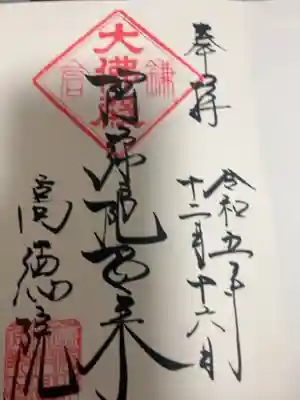 奉拝
令和五年
十二月十六日
阿弥陀如来
高徳院
大佛殿